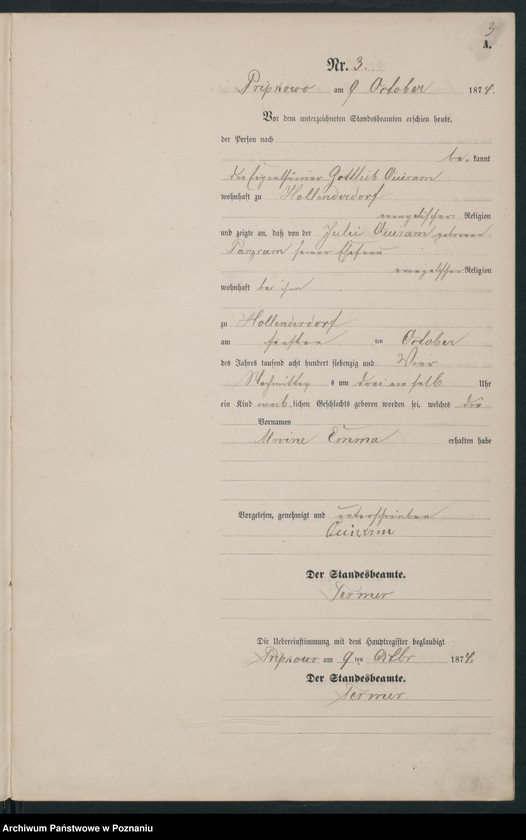 3
A.
Nr. 3.
Pripkowo am 9 October 1874.
Vor dem unterzeichneten Standesbeamten erschien heute,
der Person nach
be kannt
Gottlieb Quiram
wohnhaft zu Hollenderdorf
evangelischer Religion
und zeigte an, daß von der Julie Quiram geborene
Pangram seiner Ehefrau
evangelischer Religion
wohnhaft bei ihm
zu Hollenderdorf
am ten October
des Jahres tausend acht hundert siebenzig und Vier
Nachmittag s um drei ein halb Uhr
ein Kind weib lichen Geschlechts geboren worden sei, welches die
Vornamen
Emma erhalten habe
Vorgelesen, genehmigt und unterschrieben
Quiram
Der Standesbeamte.
Termer
Die Uebereinstimmung mit dem Hauptregister beglaubigt
Pripkowo am 9 ten 1874.
Der Standesbeamte.
Termer
Archiwum Państwowe w Poznaniu